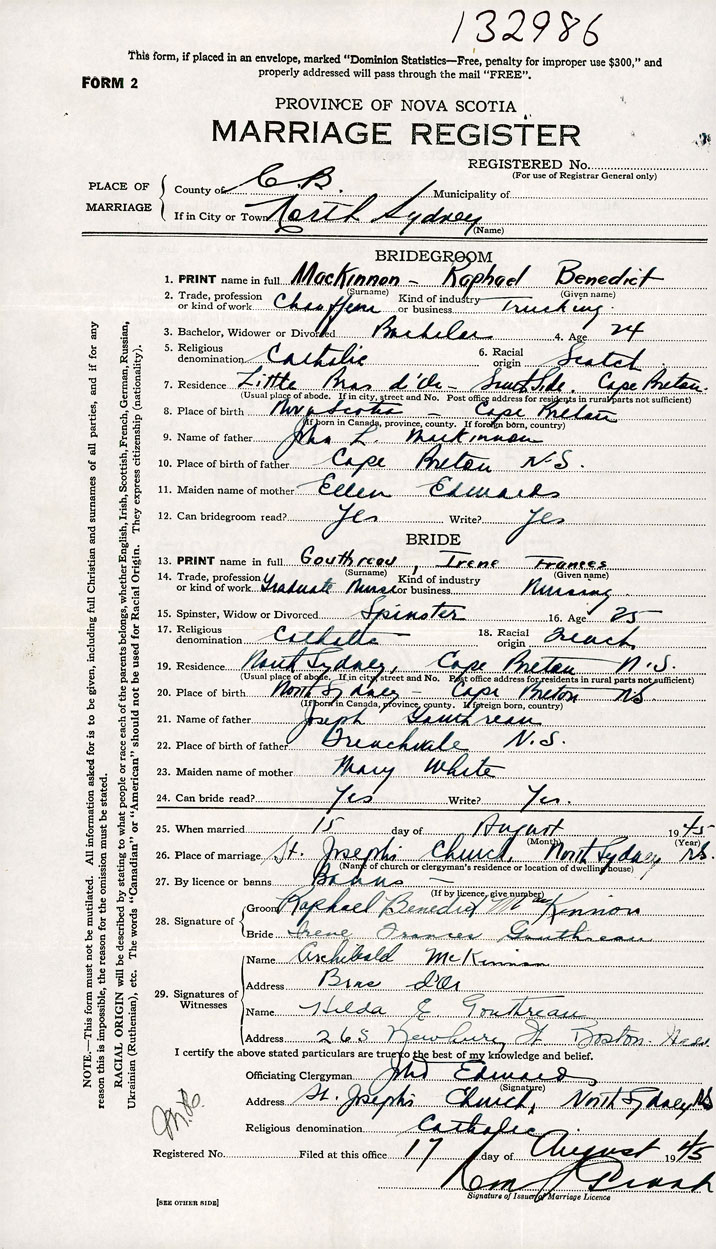 132986
This form, if placed in an envelope, marked "Dominion Statistics—Free, penalty for improper use $300," and
properly addressed will pass through the mail "FREE".
FORM 2
PROVINCE OF NOVA SCOTIA
MARRIAGE REGISTER
REGISTERED No.
(For use of Registrar General only)
PLACE OF MARRIAGE
County of C.B. Municipality of
If in City or Town North Sydney
(Name)
BRIDEGROOM
1. PRINT name in full MacKinnon - Raphael Benedict
(Surname) (Given name)
2. Trade, profession or kind of work Chauffeur Kind of industry or business Trucking
3. Bachelor, Widower or Divorced Bachelor 4. Age 24
5. Religious denomination Catholic 6. Racial origin Scotch
7. Residence Little Bras d'Or - South Side, Cape Breton.
(Usual place of abode. If in city, street and No. Post office address for residents in rural parts not sufficient)
8. Place of birth Nova Scotia - Cape Breton
(If born in Canada, province, county. If foreign born, country)
9. Name of father John L. MacKinnon
10. Place of birth of father Cape Breton N.S.
11. Maiden name of mother Ellen Edwards
12. Can bridegroom read? Yes Write? Yes
BRIDE
13. PRINT name in full Gouthreau, Irene Frances
(Surname) (Given name)
14. Trade, profession or kind of work Graduate Nurse Kind of industry or business Nursing
15. Spinster, Widow or Divorced Spinster 16. Age 25
17. Religious denomination Catholic 18. Racial origin French
19. Residence North Sydney, Cape Breton N.S.
(Usual place of abode. If in city, street and No. Post office address for residents in rural parts not sufficient)
20. Place of birth North Sydney - Cape Breton NS
(If born in Canada, province, county. If foreign born, country)
21. Name of father Joseph Gouthreau
22. Place of birth of father Frenchvale N.S.
23. Maiden name of mother Mary White
24. Can bride read? Yes Write? Yes.
25. When married 15 day of August 1945
(Month) (Year)
26. Place of marriage St. Joseph's Church, North Sydney NS.
(Name of church or clergyman's residence or location of dwelling house)
27. By licence or banns Banns
(If by licence, give number)
28. Signature of
Groom Raphael Benedict McKinnon
Bride Irene Frances Gouthreau
29. Signatures of Witnesses
Name Archibald McKinnon
Address Bras d'Or
Name Hilda E. Gouthreau
Address 265 Newbury St Boston. Mass.
I certify the above stated particulars are true to the best of my knowledge and belief.
Officiating Clergyman John Edwards
(Signature)
Address St. Joseph's Church, North Sydney NS
Religious denomination Catholic
Registered No. Filed at this office 17 day of August 1945
Signature of Issuer of Marriage Licence
[SEE OTHER SIDE]
NOTE.—This form must not be mutilated. All information asked for is to be given, including full Christian and surnames of all parties, and if for any
reason this is impossible, the reason for the omission must be stated.
RACIAL ORIGIN will be described by stating to what people or race each of the parents belongs, whether English, Irish, Scottish, French, German, Russian,
Ukrainian (Ruthenian), etc. The words "Canadian" or "American" should not be used for Racial Origin. They express citizenship (nationality).